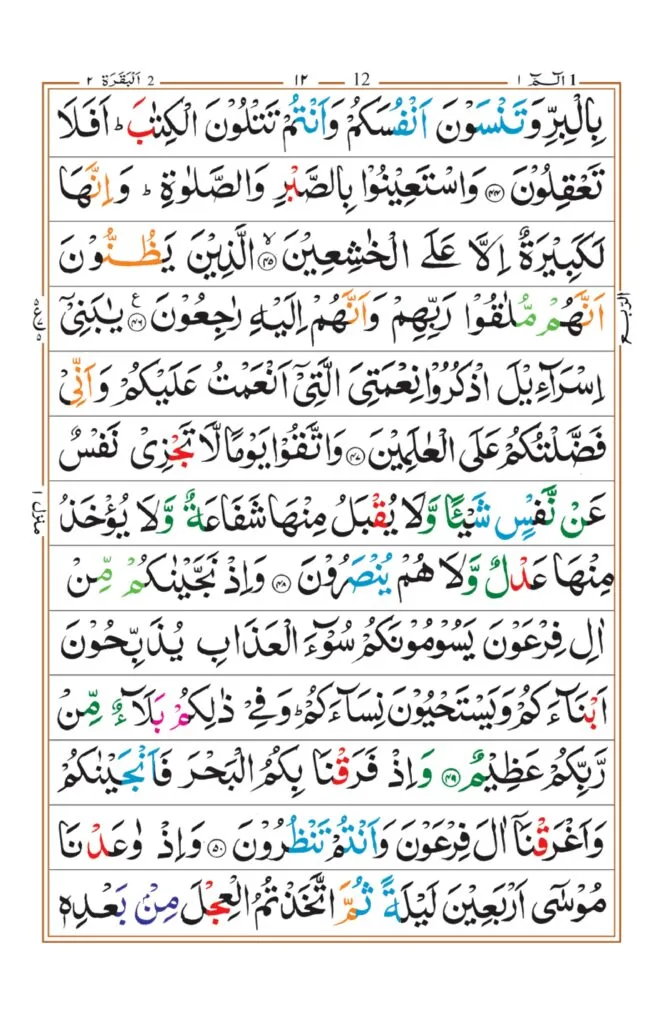 الٓمّٓ ١ 1 12 ١٢ 2 اَلْبَقَرَة ٢
بِالْبِرِّ وَتَنْسَوْنَ اَنْفُسَكُمْ وَاَنْتُمْ تَتْلُوْنَ الْكِتٰبَ ؕ اَفَلَا
تَعْقِلُوْنَ ﴿۴۴﴾ وَاسْتَعِيْنُوْا بِالصَّبْرِ وَالصَّلٰوةِ ؕ وَاِنَّهَا
لَكَبِيْرَةٌ اِلَّا عَلَى الْخٰشِعِيْنَ ﴿۴۵﴾ۙ الَّذِيْنَ يَظُنُّوْنَ
اَنَّهُمْ مُّلٰقُوْا رَبِّهِمْ وَاَنَّهُمْ اِلَيْهِ رٰجِعُوْنَ ﴿۴۶﴾ع يٰبَنِيْٓ
الربع
اِسْرَآءِيْلَ اذْكُرُوْا نِعْمَتِيَ الَّتِيْٓ اَنْعَمْتُ عَلَيْكُمْ وَاَنِّيْ
فَضَّلْتُكُمْ عَلَى الْعٰلَمِيْنَ ﴿۴۷﴾ وَاتَّقُوْا يَوْمًا لَّا تَجْزِيْ نَفْسٌ
عَنْ نَّفْسٍ شَيْـًٔا وَّلَا يُقْبَلُ مِنْهَا شَفَاعَةٌ وَّلَا يُؤْخَذُ
منزل ١
مِنْهَا عَدْلٌ وَّلَا هُمْ يُنْصَرُوْنَ ﴿۴۸﴾ وَاِذْ نَجَّيْنٰكُمْ مِّنْ
اٰلِ فِرْعَوْنَ يَسُوْمُوْنَكُمْ سُوْٓءَ الْعَذَابِ يُذَبِّحُوْنَ
اَبْنَآءَكُمْ وَيَسْتَحْيُوْنَ نِسَآءَكُمْ ؕ وَفِيْ ذٰلِكُمْ بَلَآءٌ مِّنْ
رَّبِّكُمْ عَظِيْمٌ ﴿۴۹﴾ وَاِذْ فَرَقْنَا بِكُمُ الْبَحْرَ فَاَنْجَيْنٰكُمْ
وَاَغْرَقْنَآ اٰلَ فِرْعَوْنَ وَاَنْتُمْ تَنْظُرُوْنَ ﴿۵۰﴾ وَاِذْ وٰعَدْنَا
مُوْسٰٓى اَرْبَعِيْنَ لَيْلَةً ثُمَّ اتَّخَذْتُمُ الْعِجْلَ مِنْ بَعْدِهٖ